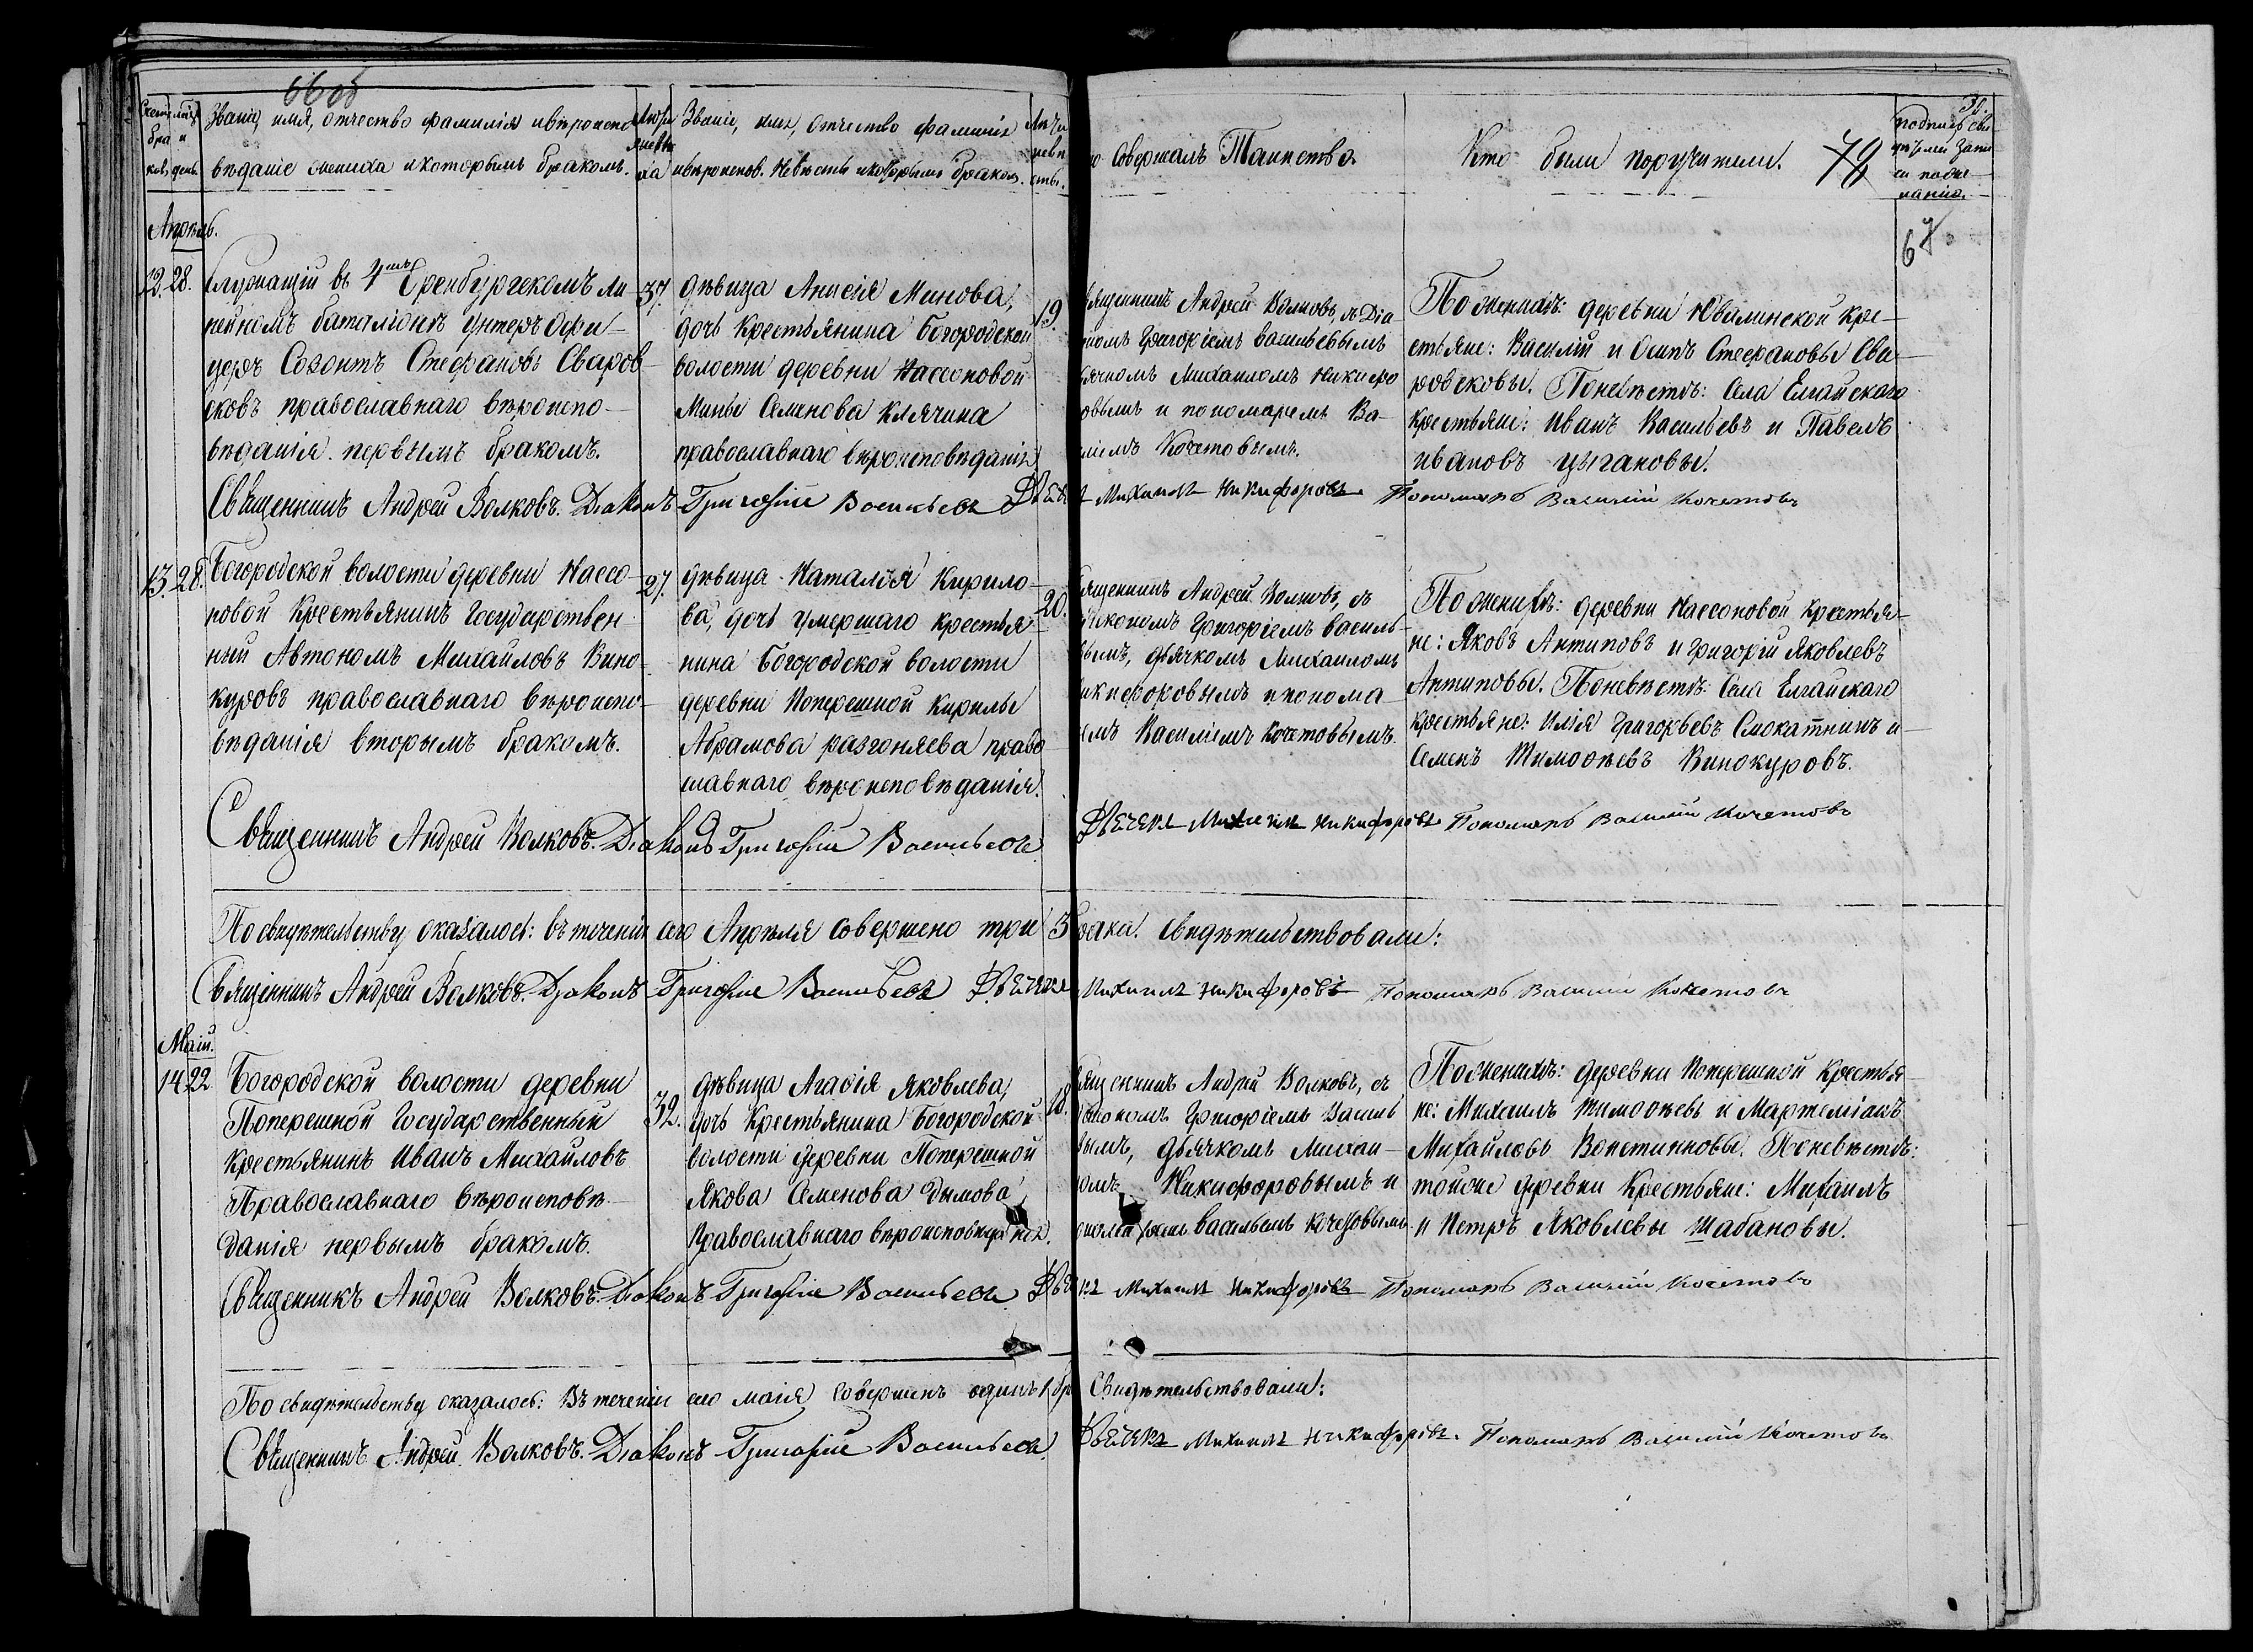 66 об
Счетъ бра ковъ
мѣсяцъ и день
Званіе, имя, отчество фамилія и вѣроиспо
вѣданіе жениха и которымъ бракомъ.
Лѣта жениха
Званіе, имя, отчество фамилія
и вѣроиспов. невѣсты и которымъ бракомъ.
Лѣта невѣсты.
Совершалъ Таинство.
Кто были поручители.
78
подпись сви
дѣтелей запи
си по же
ланію.
67
Апрѣль.
12. 28.
Служащій въ 4мъ Оренбургскомъ ли
нейномъ баталіонѣ унтеръ офи-
церъ Созонтъ Стефановъ Сваров-
сковъ православнаго вѣроиспо-
вѣданія первымъ бракомъ.
37.
дѣвица Анисія Минова,
дочь Крестьянина Богородской
волости деревни Нассоновой
Мины Семенова Клячина
православнаго вѣроисповѣданія
19.
священникъ Андрей Волковъ, съ Діа
кономъ Григоріемъ Васильевымъ
дьячкомъ Михаиломъ Никифо
ровымъ и пономаремъ Ва-
силіемъ Кочетовымъ.
По женихѣ: деревни Ювалинской кре-
стьяне: Василій и Осипъ Стефановы Сва-
ровсковы. По невѣстѣ: Села Елгайскаго
крестьяне: Иванъ Васильевъ и Павелъ
Ивановъ Цыгановы.
Священникъ Андрей Волковъ. Діаконъ Григорій Васильевъ Дьячекъ Михаилъ Никифоровъ Пономарь Василій Кочетовъ
13. 28.
Богородской волости деревни Нассо-
новой Крестьянинъ Государствен
ный Автономъ Михайловъ Вино-
куровъ православнаго вѣроиспо-
вѣданія вторымъ бракомъ.
27.
дѣвица Наталія Кирило-
ва, дочь умершаго крестья-
нина Богородской волости
деревни Поперешной Кирилы
Абрамова Разгоняева право
славнаго вѣроисповѣданія.
20.
священникъ Андрей Волковъ, съ
Діакономъ Григоріемъ Василь-
евымъ, дьячкомъ Михаиломъ
Никифоровымъ и понома-
ремъ Василіемъ Кочетовымъ.
По женихѣ: деревни Нассоновой крестья-
не: Яковъ Антиповъ и Григорій Яковлевъ
Антиповы. По невѣстѣ: Села Елгайскаго
крестьяне: Илія Григорьевъ Скокатнинъ и
Семенъ Тимоѳѣевъ Винокуровъ.
Священникъ Андрей Волковъ. Діаконъ Григорій Васильевъ Дьячекъ Михаилъ Никифоровъ Пономарь Василій Кочетовъ
По свидѣтельству оказалось: въ теченіи сего Апрѣля совершено три 3 брака. Свидѣтельствовали:
Священникъ Андрей Волковъ. Діаконъ Григорій Васильевъ Дьячекъ Михаилъ Никифоровъ Пономарь Василій Кочетовъ
Маій.
14 22
Богородской волости деревни
Поперешной Государственный
Крестьянинъ Иванъ Михайловъ
Православнаго вѣроисповѣ-
данія первымъ бракомъ.
32.
дѣвица Агаѳія Яковлева,
дочь Крестьянина Богородской
волости деревни Поперешной
Якова Семенова Дымова
Православнаго вѣроисповѣданія.
18.
священникъ Андрей Волковъ, съ
Діакономъ Григоріемъ Василь
евымъ, дьячкомъ Михаи-
ломъ Никифоровымъ и
пономаремъ Васильемъ Кочетовымъ
По женихѣ: деревни Поперешной Крестья-
не: Михаилъ Тимоѳѣевъ и Мартеміанъ
Михайловъ Вопстинновы. По невѣстѣ:
тойже деревни Крестьяне: Михаилъ
и Петръ Яковлевы Шабановы.
Священникъ Андрей Волковъ. Діаконъ Григорій Васильевъ Дьячекъ Михаилъ Никифоровъ Пономарь Василій Кочетовъ
По свидѣтельству оказалось: Въ теченіи сего маія совершенъ одинъ 1 бр Свидѣтельствовали:
Священникъ Андрей Волковъ. Діаконъ Григорій Васильевъ. Дьячекъ Михаилъ Никифоровъ. Пономарь Василій Кочетовъ